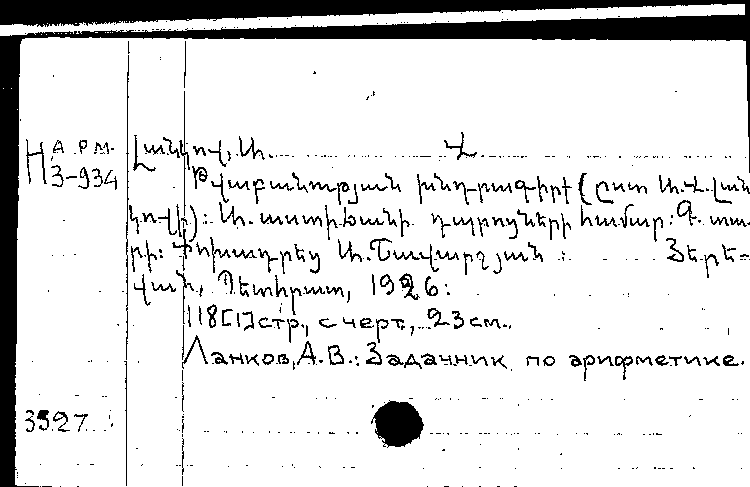 Н АРМ. 3-934
Լանկով, Ա. Վ.
Թվաբանության խնդրագիրք (ըստ Ա. Վ. Լան
կովի): Ա. աստիճանի դպրոցների համար: Գ. տա
րի: Փոխադրեց Ա. Շավարշյան: Յերե-
վան, Պետհրատ, 1926:
118[1]стр., с черт., 23см.
Ланков, А.В.: Задачник по арифметике.
3527